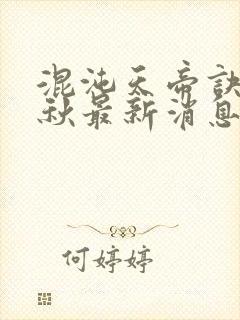 混沌天帝訣
秋最新消息
何婷婷